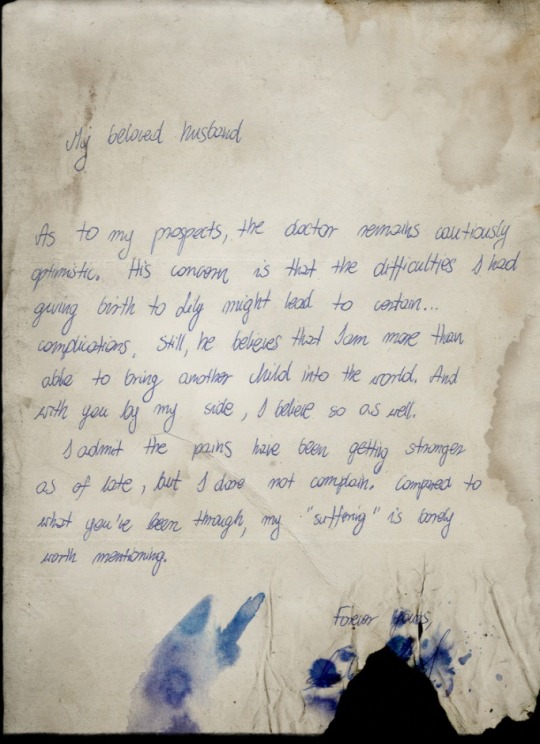 My beloved husband
As to my prospects, the doctor remains cautiously
optimistic. His concern is that the difficulties I had
giving birth to Lily might lead to certain...
complications. Still, he believes that I am more than
able to bring another child into the world. And
with you by my side, I believe so as well.
I admit the pains have been getting stronger
as of late, but I dare not complain. Compared to
what you've been through, my "suffering" is barely
worth mentioning.
Forever yours,